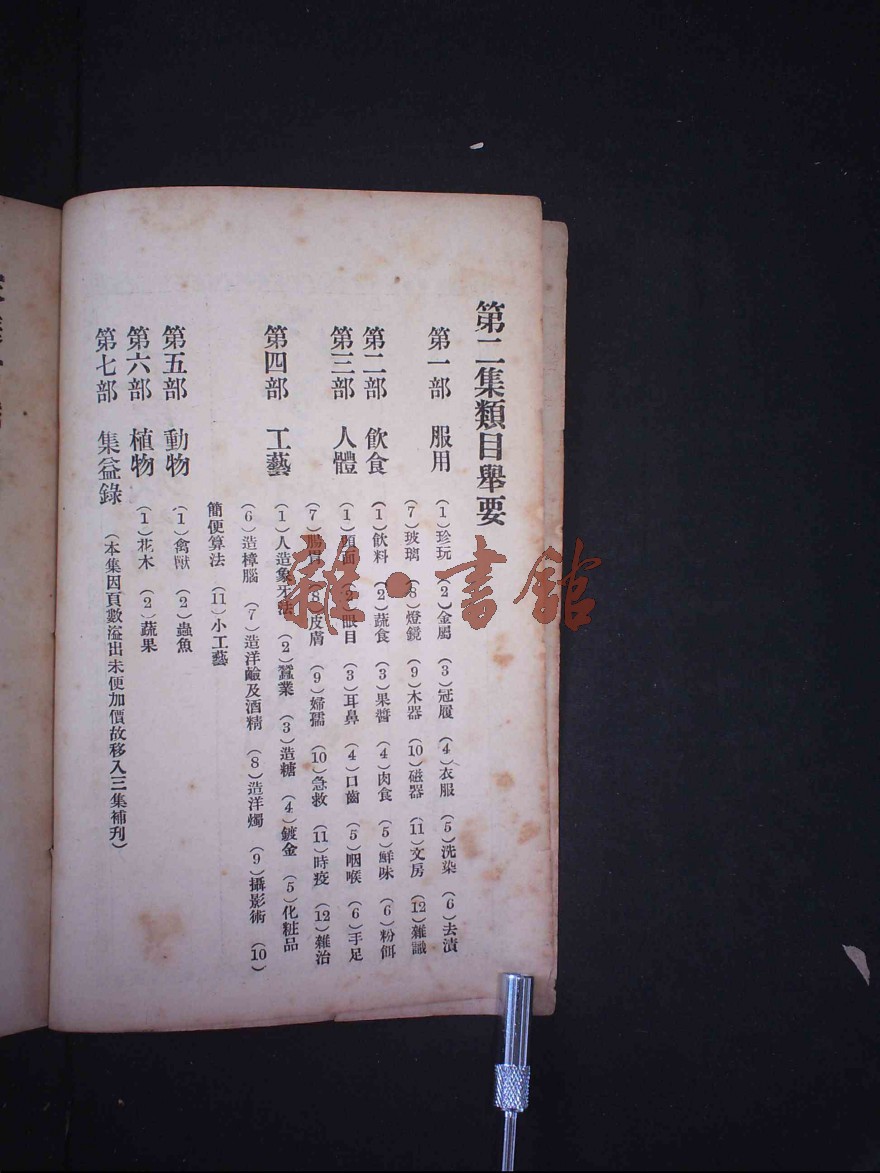 第二集類目舉要
第一部 服用 (1)珍玩 (2)金屬 (3)冠履 (4)衣服 (5)洗染 (6)去漬
(7)玻璃 (8)燈鏡 (9)木器 (10)磁器 (11)文房 (12)雜識
第二部 飲食 (1)飲料 (2)蔬食 (3)果醬 (4)肉食 (5)鮮味 (6)粉餌
第三部 人體 (1)頭面 (2)眼目 (3)耳鼻 (4)口齒 (5)咽喉 (6)手足
(7)腸胃 (8)皮膚 (9)婦孺 (10)急救 (11)時疫 (12)雜治
第四部 工藝 (1)人造象牙法 (2)蠶業 (3)造糖 (4)鍍金 (5)化粧品
(6)造樟腦 (7)造洋鹼及酒精 (8)造洋燭 (9)攝影術 (10)
簡便算法 (11)小工藝
第五部 動物 (1)禽獸 (2)蟲魚
第六部 植物 (1)花木 (2)蔬果
第七部 集益錄 (本集因頁數溢出未便加價故移入三集補刋)
雜·書館